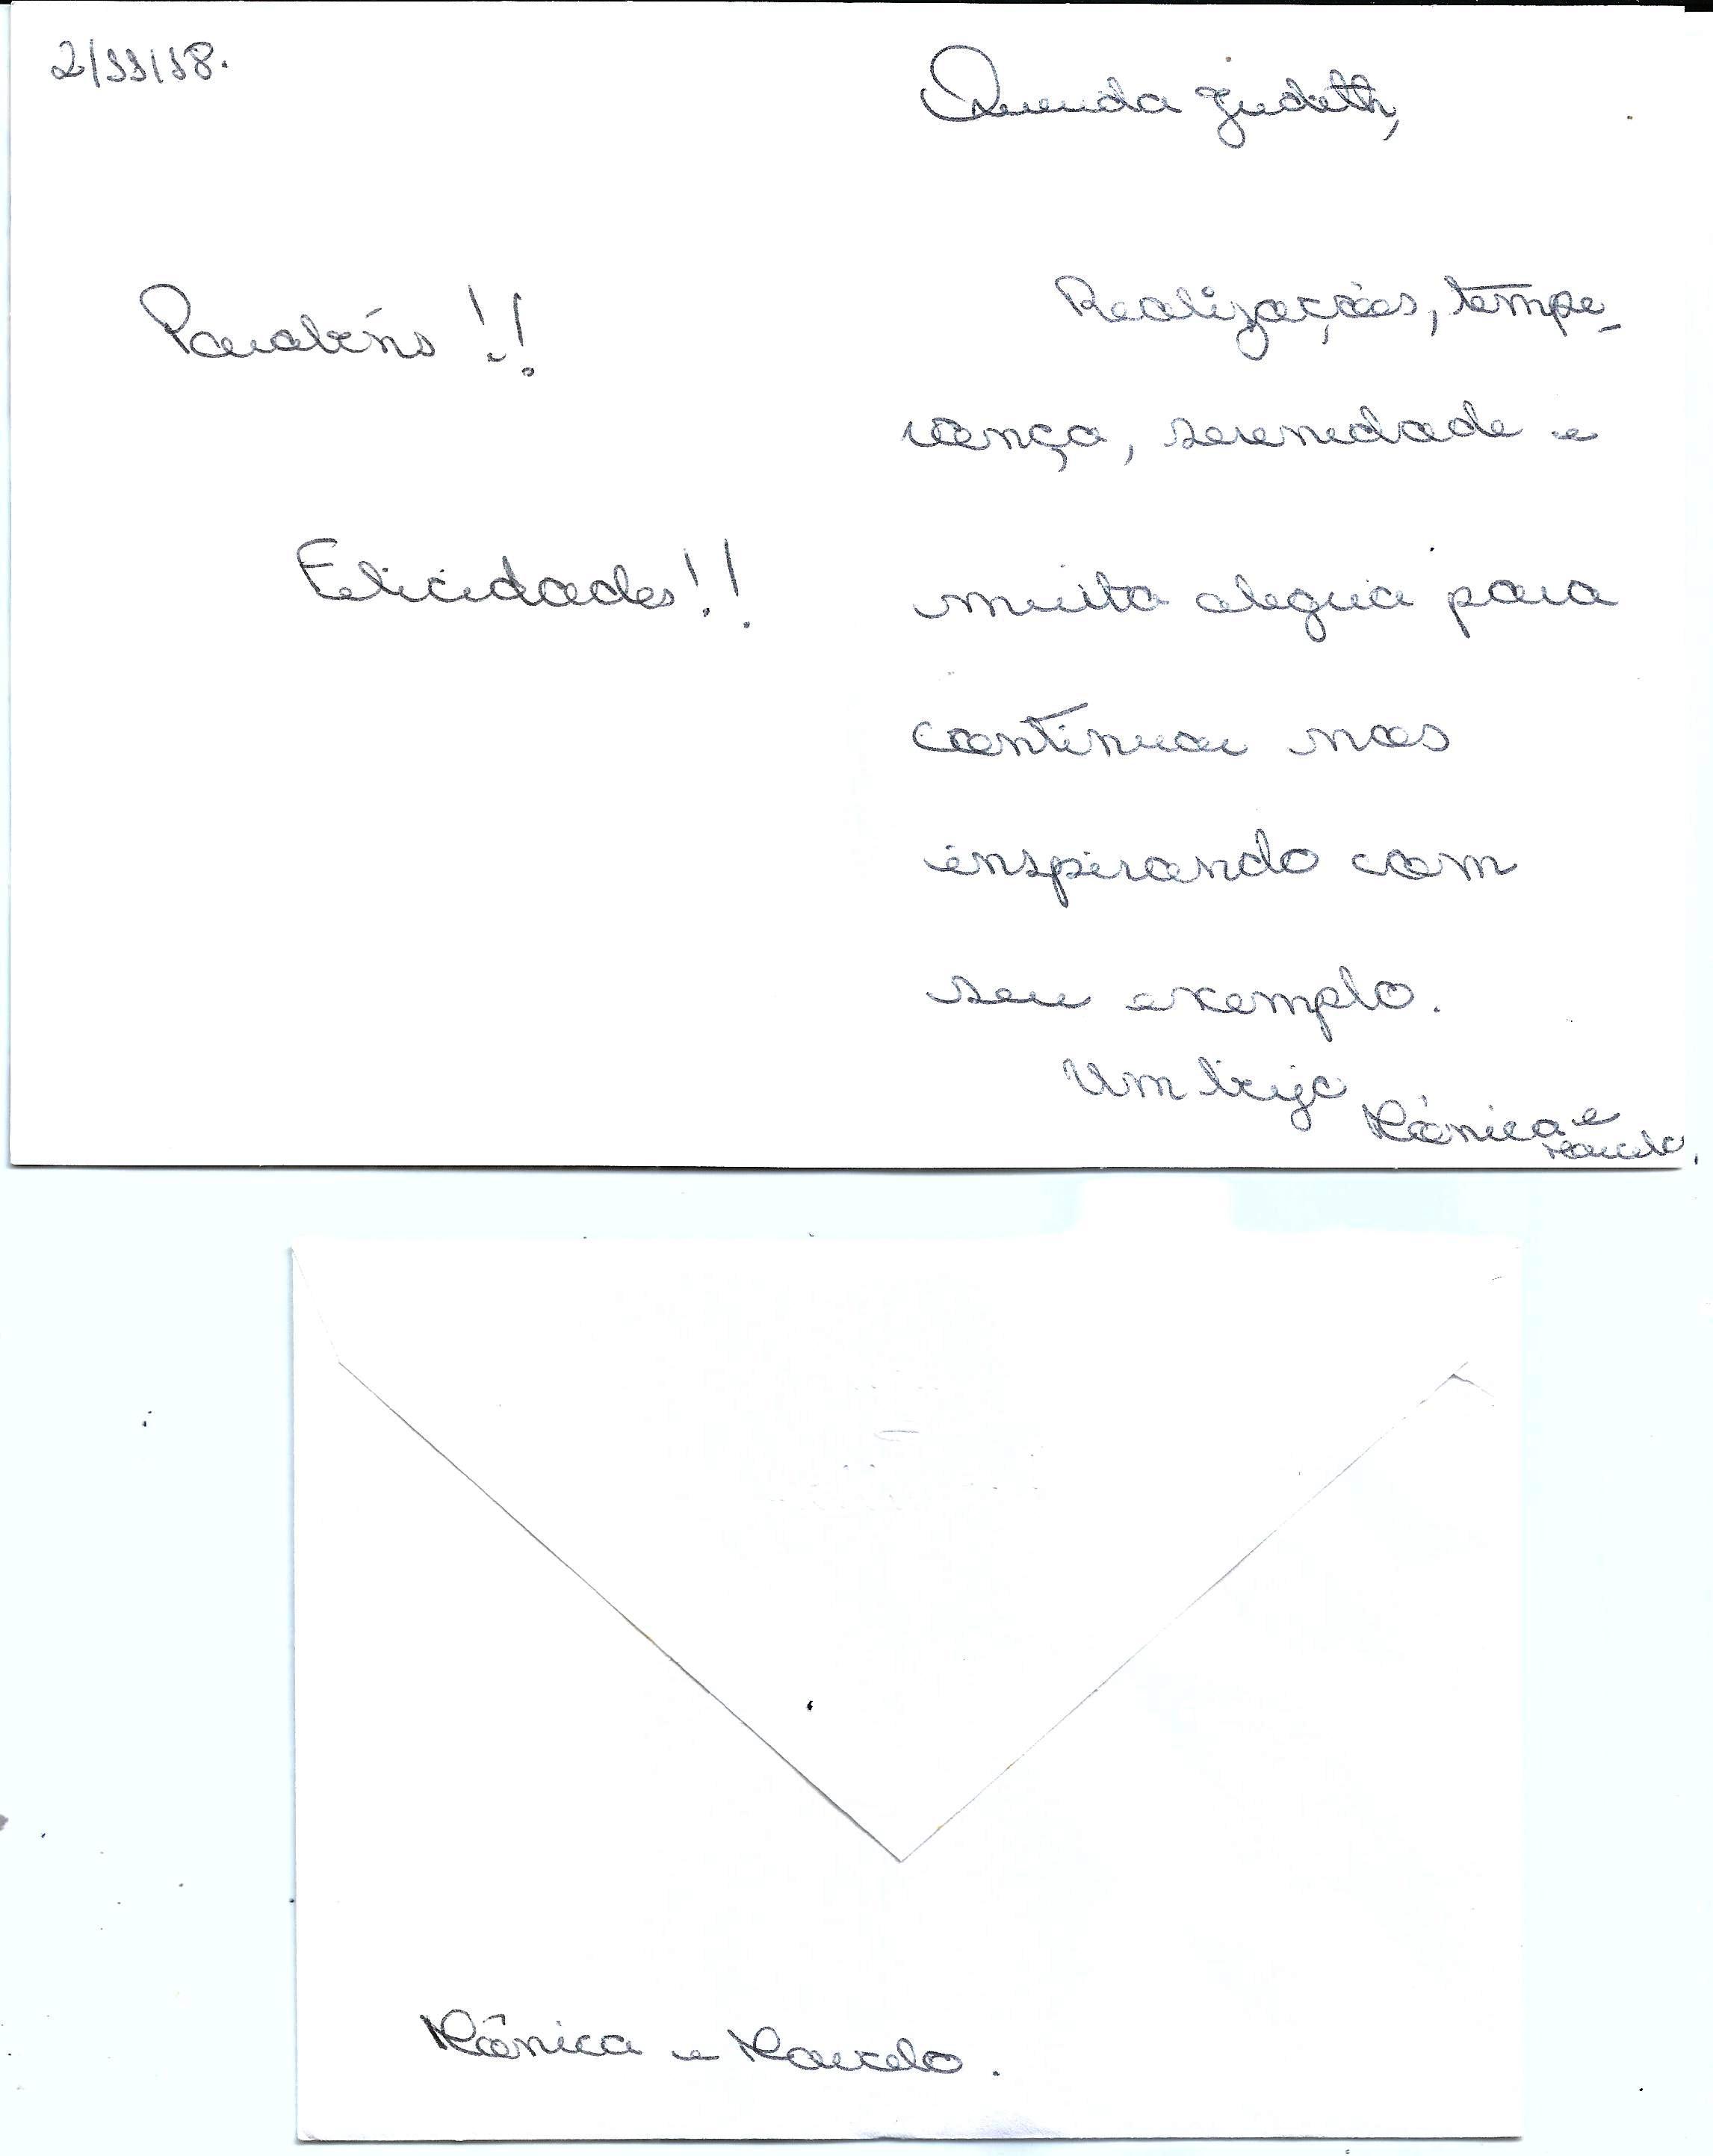 2/11/18.
Parabéns!!
Felicidades!!
Querida Judith,
Realizações, tempe-
rança, serenidade e
muita alegria para
continuar nos
inspirando com
seu exemplo.
Um beijo
Mônica e
Marcelo.
Mônica e Marcelo.